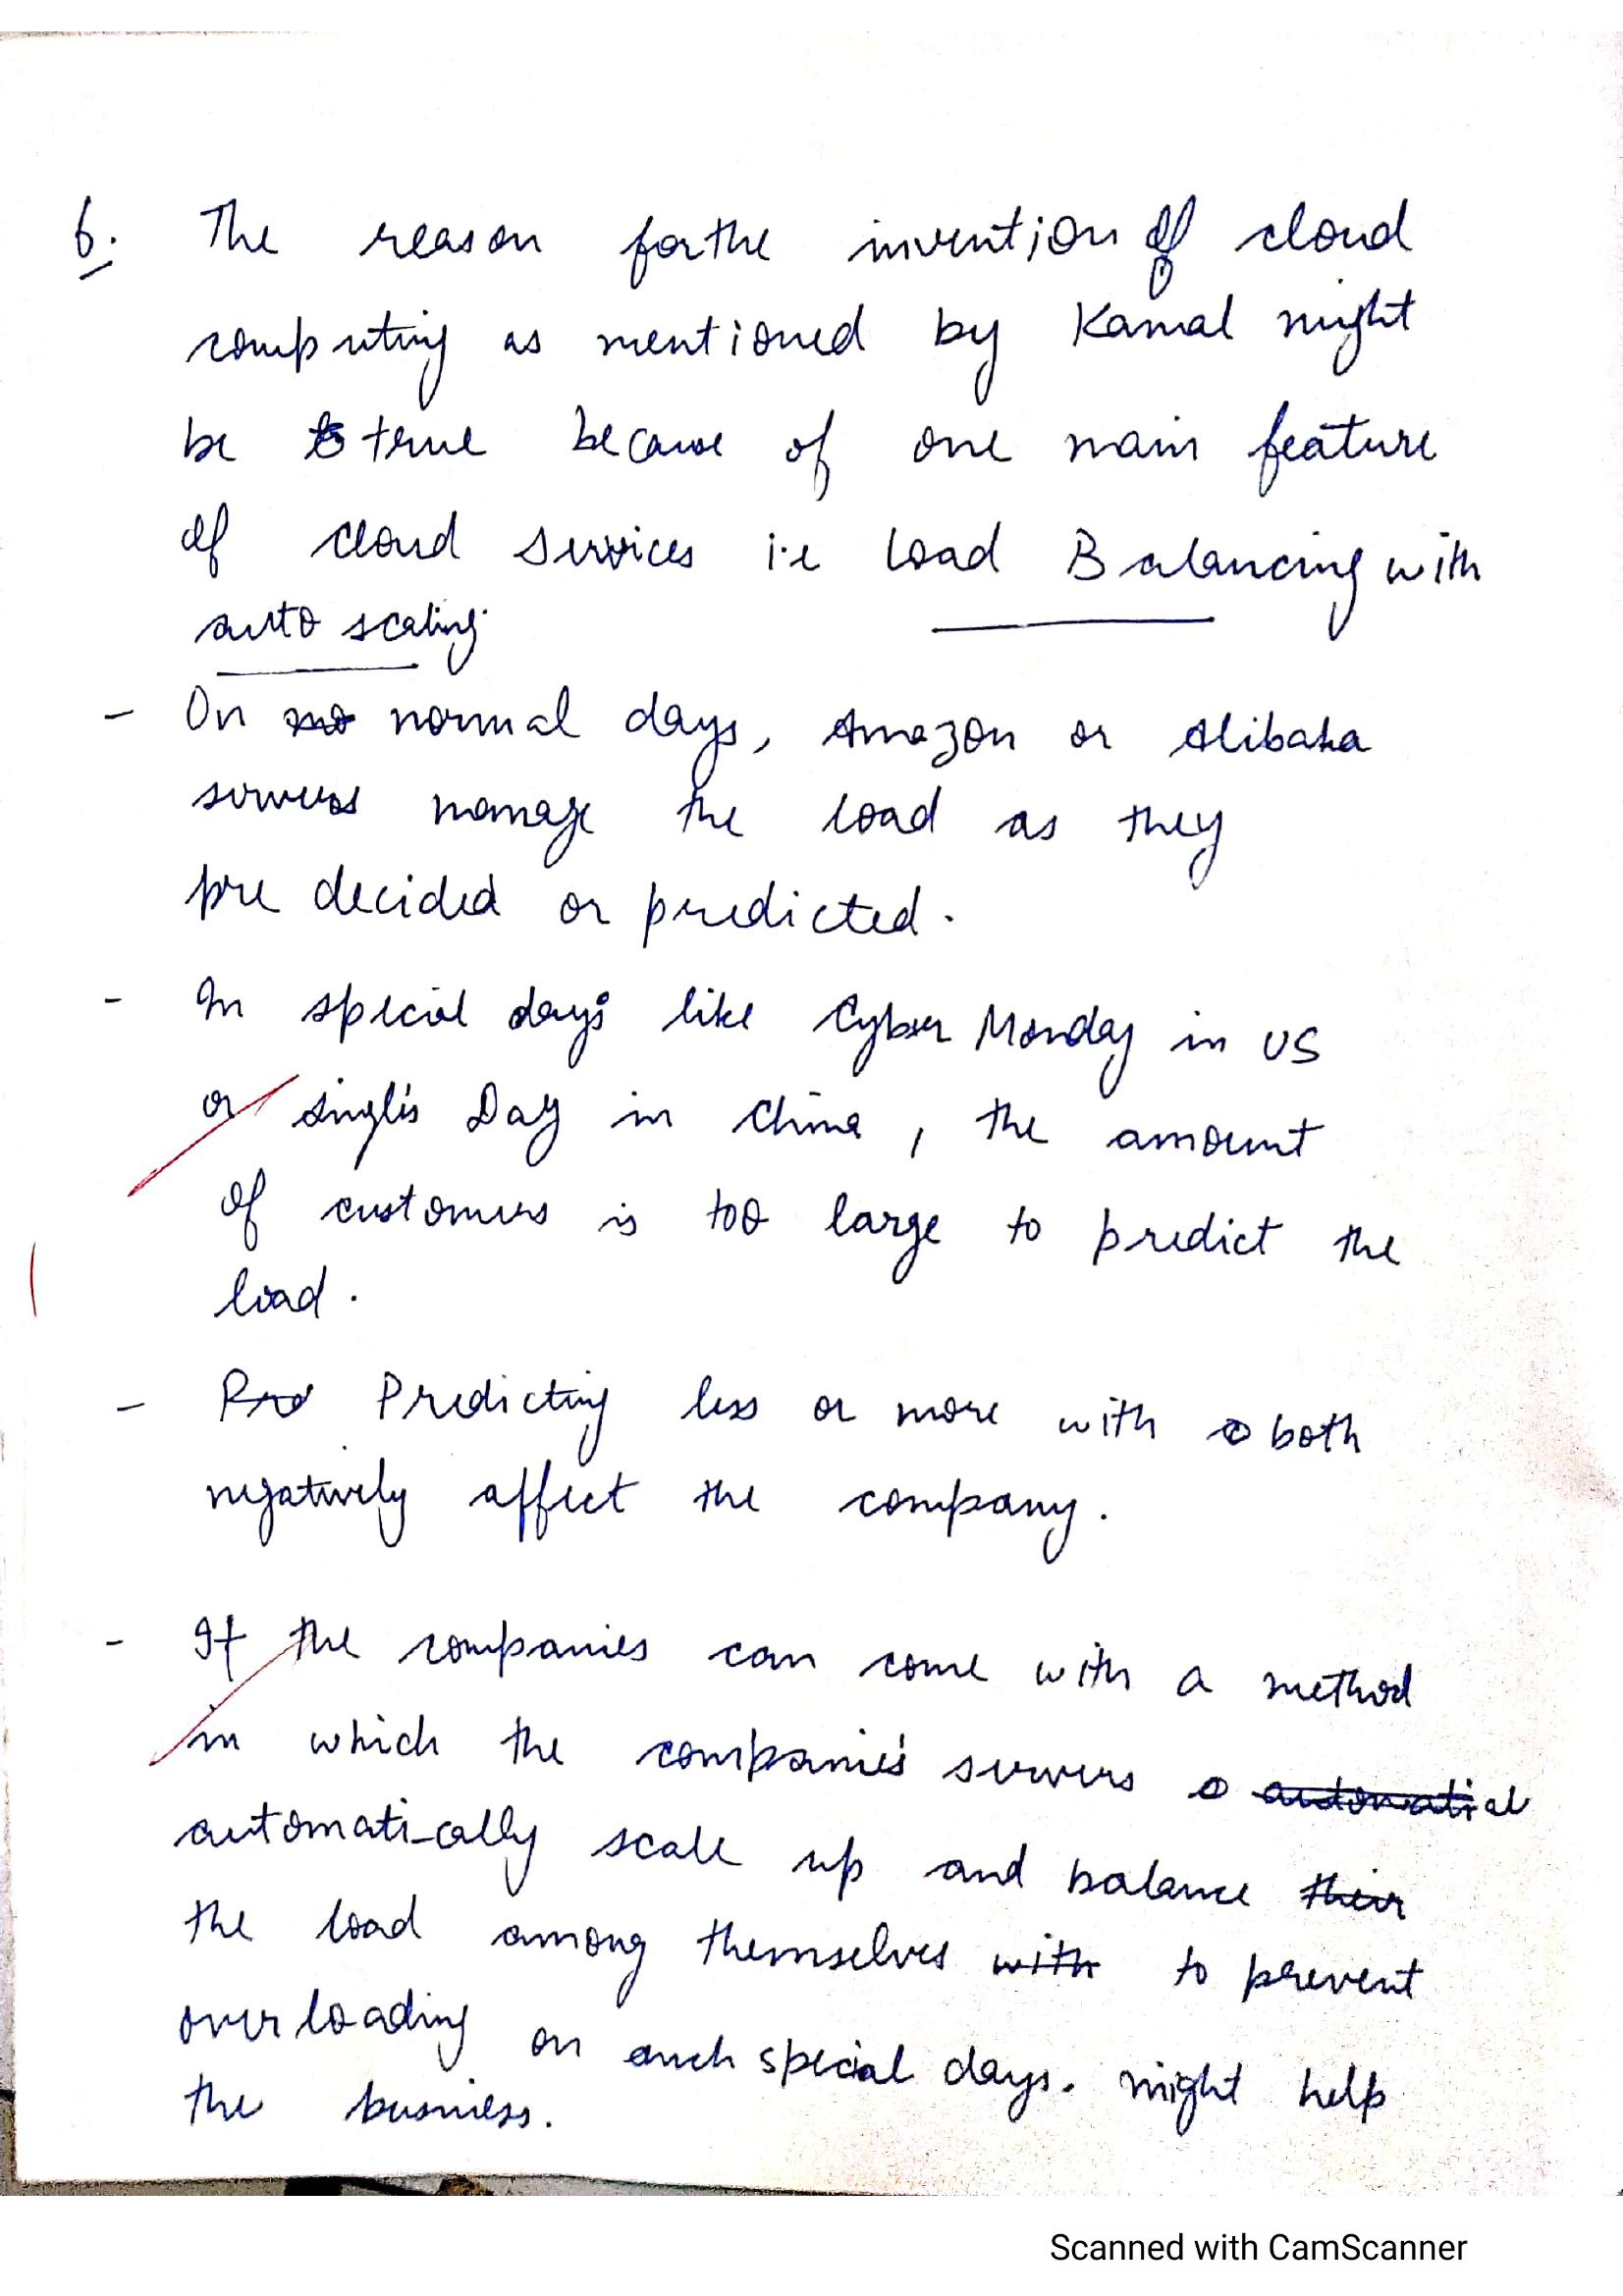 6. The reason for the invention of cloud
computing as mentioned by Kamal might
be true because of one main feature
of cloud services i.e Load Balancing with
auto scaling.
- On normal days, Amazon or Alibaba
servers manage the load as they
pre decided or predicted.
- In special days like Cyber Monday in US
or Single's Day in China, the amount
of customers is too large to predict the
load.
- Predicting less or more with both
negatively affect the company.
- If the companies can come with a method
in which the companies servers
automati-cally scale up and balance
the load among themselves to prevent
over loading on such special days. might help
the business.
Scanned with CamScanner